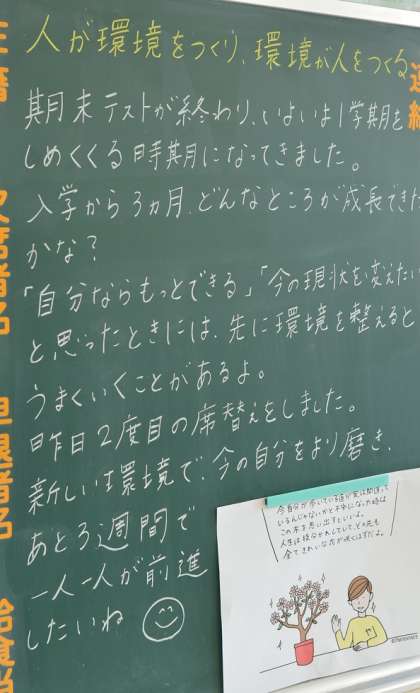 人が環境をつくり、環境が人をつくる
期末テストが終わり、いよいよ1学期を
しめくくる時期になってきました。
入学から3ヵ月、どんなところが成長できた
かな?
「自分ならもっとできる」「今の現状を変えたい
と思ったときには、先に環境を整えると
うまくいくことがあるよ。
昨日2度目の席替えをしました。
新しい環境で、今の自分をより磨き、
あと3週間で
一人一人が前進
したいね
欠席者名
早退者名
給食当
連絡
今自分が歩いている道が実は間違って
いるんじゃないかと不安になった時は
この木を思い出すといいよ。
人生は枝分かれしていて、どの先も
全てきれいな花が咲くはずだよ。